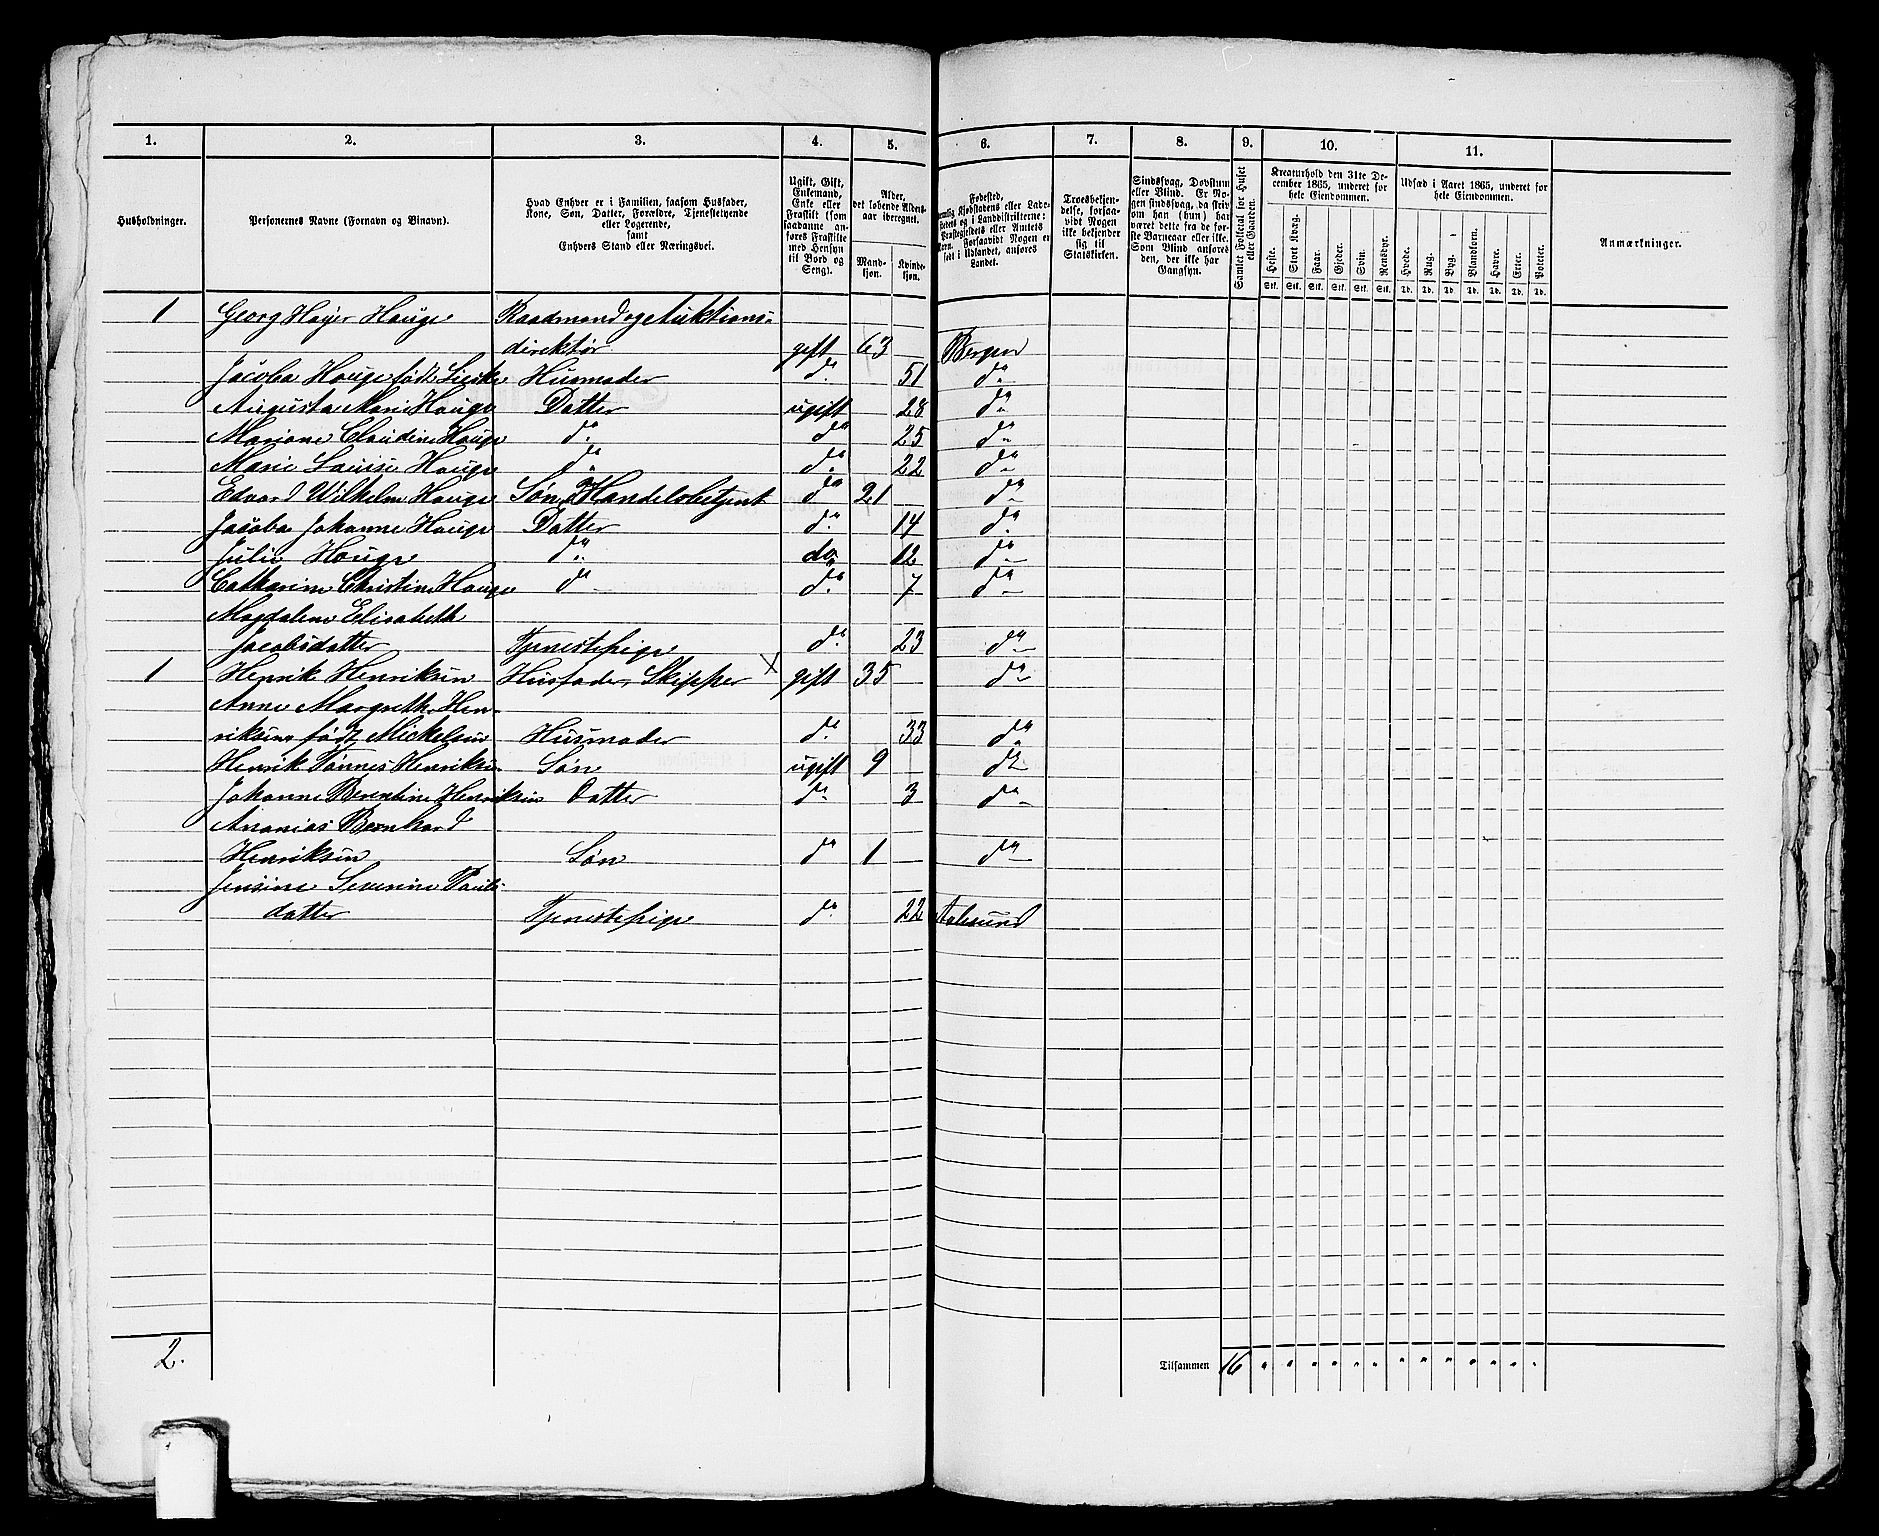 1. 2. 3. 4. 5. 6. 7. 8. 9. 10. 11.
Husholdninger.
Personernes Navne (Fornavn og Binavn).
Hvad Enhver er i Familien, saasom Husfader,
Kone, Søn, Datter, Forældre, Tjenestetyende
eller Logerende,
samt
Enhvers Stand eller Næringsvei.
Ugift, Gift,
Enkemand,
Enke eller
Fraskilt (som
saadanne an-
føres Fraskilte
med Hensyn
til Bord og
Seng).
Alder,
det løbende Alders-
aar iberegnet.
Mand-
kjøn.
Kvinde-
kjøn.
Fødested,
nemlig Kjøbstadens eller Lade-
stedets og i Landdistrikterne:
Præstegjeldets eller Amtets
Navn. Forsaavidt Nogen er
født i Udlandet, anføres
Landet.
Troesbekjen-
delse, forsaa-
vidt Nogen
ikke bekjender
sig til
Statskirken.
Sindssvag, Døvstum
eller Blind. Er No-
gen sindssvag, da skriv
om han (hun) har
været dette fra de før-
ste Barneaar eller ikke.
Som Blind anføres
den, der ikke har
Gangsyn.
Samlet Folketal for Huset
eller Gaarden.
Kreaturhold den 31te De-
cember 1865, underet for
hele Eiendommen.
Heste. Stort Kvæg. Faar. Gjeder. Svin. Rensdyr.
Stk. Stk. Stk. Stk. Stk. Stk.
Udsæd i Aaret 1865, underet for
hele Eiendommen.
Hvede. Rug. Byg. Blandkorn. Havre. Erter. Poteter.
Td. Td. Td. Td. Td. Td. Td.
Anmærkninger.
1 Georg Høyer Hauge Raadmand og Auktions-
direktør gift 63 Bergen
Jacoba Hauge født do. 51 do
Husmoder
Augusta Marie Hauge Datter ugift 28 do
Mariane Claudine Hauge do do 25 do
Marie Louise Hauge do do 22 do
Edvard Wilhelm Hauge Søn, Handelsbetjent do 21 do
Jacoba Johanne Hauge Datter do 14 do
Julie Hauge do do 12 do
Catharine Christine Hauge do do 7 do
Magdalene Elisabeth
Jacobsdatter Tjenestepige do 23 do
1 Henrik Henriksen Husfader, Skipper X gift 35 do
Anne Margrethe Hen-
riksen født Mickelsen Husmoder do 33 do
Henrik Tønnes Henriksen Søn ugift 9 do
Johanne Berentine Henriksen Datter do 3 do
Ananias Bernhard
Henriksen Søn do 1 do
Jensine Severine Pauls-
datter Tjenestepige do 22 Aalesund
2. Tilsammen 16 " " " " " " " " " " " " "